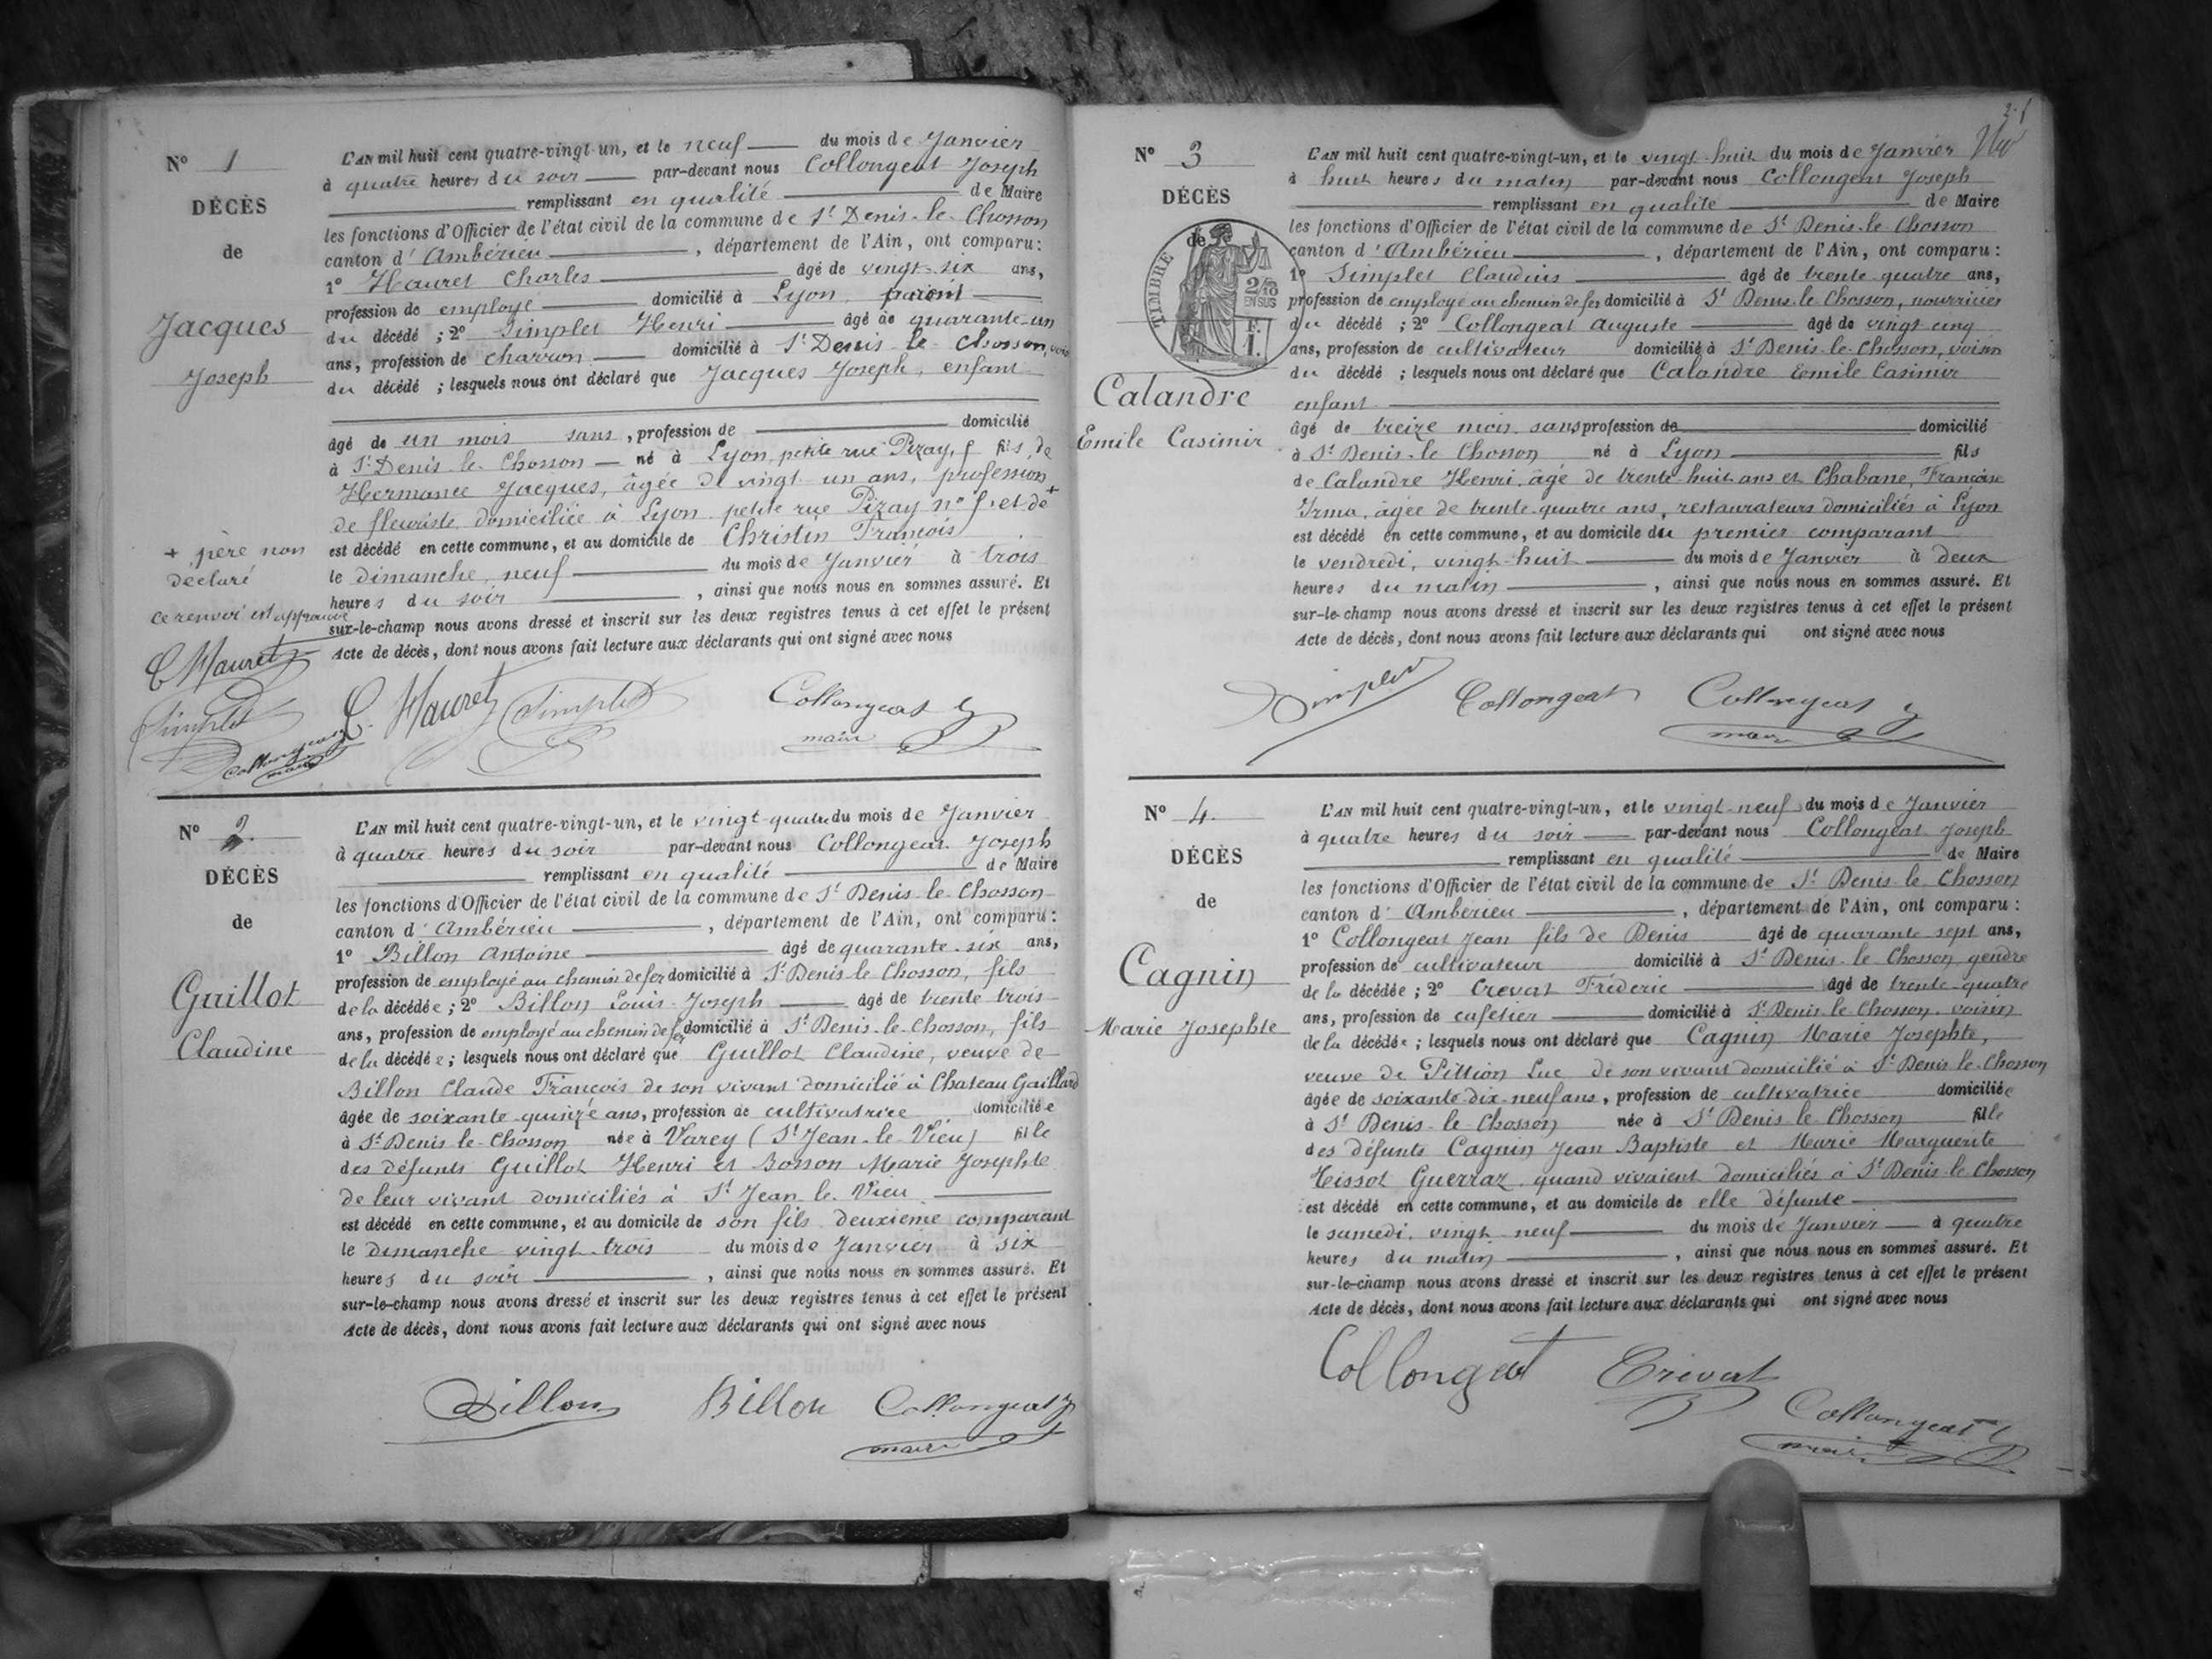 N° 1
DÉCÈS
de
Jacques
Joseph
+ père non
déclaré
ce renvoi est approuvé
C Hauret
Simplet
Collongeat
maire
L'AN mil huit cent quatre-vingt-un, et le neuf du mois de Janvier
à quatre heures du soir par-devant nous Collongeat Joseph
remplissant en qualité de Maire
les fonctions d'Officier de l'état civil de la commune de St Denis-le-Chosson
canton d'Ambérieu, département de l'Ain, ont comparu :
1° Hauret Charles âgé de vingt-six ans,
profession de employé domicilié à Lyon, parent
du décédé ; 2° Simplet Henri âgé de quarante-un
ans, profession de charron domicilié à St Denis-le-Chosson, voisin
du décédé ; lesquels nous ont déclaré que Jacques Joseph, enfant
âgé de un mois sans, profession de domicilié
à St Denis-le-Chosson né à Lyon, petite rue Pizay, fils de
Hermance Jacques, âgée de vingt-un ans, profession
de fleuriste, domiciliée à Lyon petite rue Pizay n° et de +
est décédé en cette commune, et au domicile de Christin François
le dimanche, neuf du mois de Janvier à trois
heures du soir, ainsi que nous nous en sommes assuré. Et
sur-le-champ nous avons dressé et inscrit sur les deux registres tenus à cet effet le présent
Acte de décès, dont nous avons fait lecture aux déclarants qui ont signé avec nous
C. Hauret Simplet Collongeat
maire
N° 2.
DÉCÈS
de
Guillot
Claudine
L'AN mil huit cent quatre-vingt-un, et le vingt-quatre du mois de Janvier
à quatre heures du soir par-devant nous Collongeat Joseph
remplissant en qualité de Maire
les fonctions d'Officier de l'état civil de la commune de St Denis-le-Chosson
canton d'Ambérieu, département de l'Ain, ont comparu :
1° Billon Antoine âgé de quarante-six ans,
profession de employé au chemin de fer domicilié à St Denis-le-Chosson, fils
de la décédée ; 2° Billon Louis-Joseph âgé de trente trois
ans, profession de employé au chemin de fer domicilié à St Denis-le-Chosson, fils
de la décédée ; lesquels nous ont déclaré que Guillot Claudine, veuve de
Billon Claude François de son vivant domicilié à Chateau Gaillard
âgée de soixante-quinze ans, profession de cultivatrice domiciliée
à St Denis-le-Chosson née à Varey (St Jean-le-Vieu) fille
des défunts Guillot Henri et Bosson Marie Josephte
de leur vivant domiciliés à St Jean-le-Vieu
est décédé en cette commune, et au domicile de son fils deuxieme comparant
le dimanche vingt-trois du mois de Janvier à six
heures du soir, ainsi que nous nous en sommes assuré. Et
sur-le-champ nous avons dressé et inscrit sur les deux registres tenus à cet effet le présent
Acte de décès, dont nous avons fait lecture aux déclarants qui ont signé avec nous
Billon Billon Collongeat
maire
N° 3
DÉCÈS
de
TIMBRE
2/10
EN SUS
F.
1.
Calandre
Emile Casimir
L'AN mil huit cent quatre-vingt-un, et le vingt-huit du mois de Janvier
à huit heures du matin par-devant nous Collongeat Joseph
remplissant en qualité de Maire
les fonctions d'Officier de l'état civil de la commune de St Denis-le-Chosson
canton d'Ambérieu, département de l'Ain, ont comparu :
1° Simplet Claudius âgé de trente-quatre ans,
profession de employé au chemin de fer domicilié à St Denis-le-Chosson, nourricier
du décédé ; 2° Collongeat Auguste âgé de vingt cinq
ans, profession de cultivateur domicilié à St Denis-le-Chosson, voisin
du décédé ; lesquels nous ont déclaré que Calandre Emile Casimir
enfant
âgé de treize mois sans profession de domicilié
à St Denis-le-Chosson né à Lyon fils
de Calandre Henri, âgé de trente-huit ans et Chabane, Françoise
Irma, âgée de trente-quatre ans, restaurateurs domiciliés à Lyon
est décédé en cette commune, et au domicile du premier comparant
le vendredi, vingt-huit du mois de Janvier à deux
heures du matin, ainsi que nous nous en sommes assuré. Et
sur-le-champ nous avons dressé et inscrit sur les deux registres tenus à cet effet le présent
Acte de décès, dont nous avons fait lecture aux déclarants qui ont signé avec nous
Simplet Collongeat Collongeat
maire
N° 4.
DÉCÈS
de
Cagnin
Marie Josephte
L'AN mil huit cent quatre-vingt-un, et le vingt-neuf du mois de Janvier
à quatre heures du soir par-devant nous Collongeat Joseph
remplissant en qualité de Maire
les fonctions d'Officier de l'état civil de la commune de St Denis-le-Chosson
canton d'Ambérieu, département de l'Ain, ont comparu :
1° Collongeat Jean fils de Denis âgé de quarante sept ans,
profession de cultivateur domicilié à St Denis-le-Chosson, gendre
de la décédée ; 2° Crevat Fréderic âgé de trente-quatre
ans, profession de cafetier domicilié à St Denis-le-Chosson, voisin
de la décédée ; lesquels nous ont déclaré que Cagnin Marie Josephte,
veuve de Pittion Luc de son vivant domicilié à St Denis-le-Chosson
âgée de soixante-dix-neuf ans, profession de cultivatrice domiciliée
à St Denis-le-Chosson née à St Denis-le-Chosson fille
des défunts Cagnin Jean Baptiste et Marie Marguerite
Tissot Guerraz quand vivaient domiciliés à St Denis-le-Chosson
est décédé en cette commune, et au domicile de elle défunte
le samedi, vingt-neuf du mois de Janvier à quatre
heures du matin, ainsi que nous nous en sommes assuré. Et
sur-le-champ nous avons dressé et inscrit sur les deux registres tenus à cet effet le présent
Acte de décès, dont nous avons fait lecture aux déclarants qui ont signé avec nous
Collongeat Crevat
Collongeat
maire